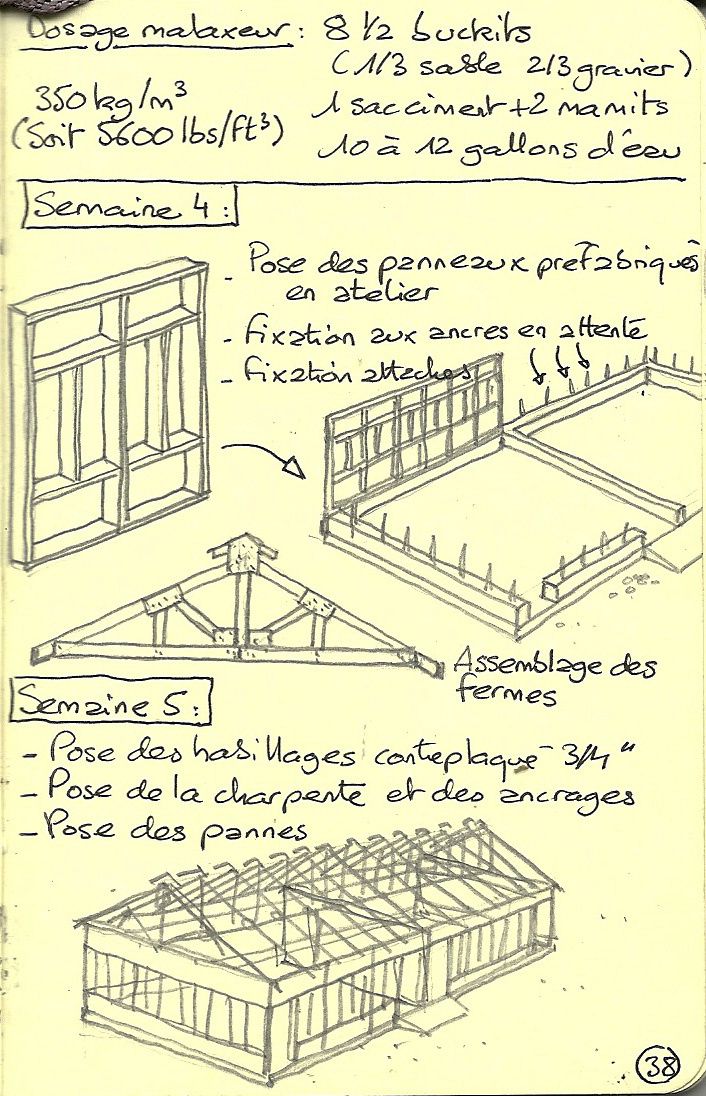 Dosage malaxeur : 8 1/2 buckits
(1/3 sable 2/3 gravier)
350 kg/m³
(Soit 5600 lbs/ft³)
1 sac ciment + 2 mamits
10 à 12 gallons d'eau
Semaine 4 :
- Pose des panneaux prefabriqués
en atelier
- fixation aux ancres en attente
- fixation attaches
Assemblage des
fermes
Semaine 5 :
- Pose des habillages conteplaqué 3/4"
- Pose de la charpente et des ancrages
- Pose des pannes
38